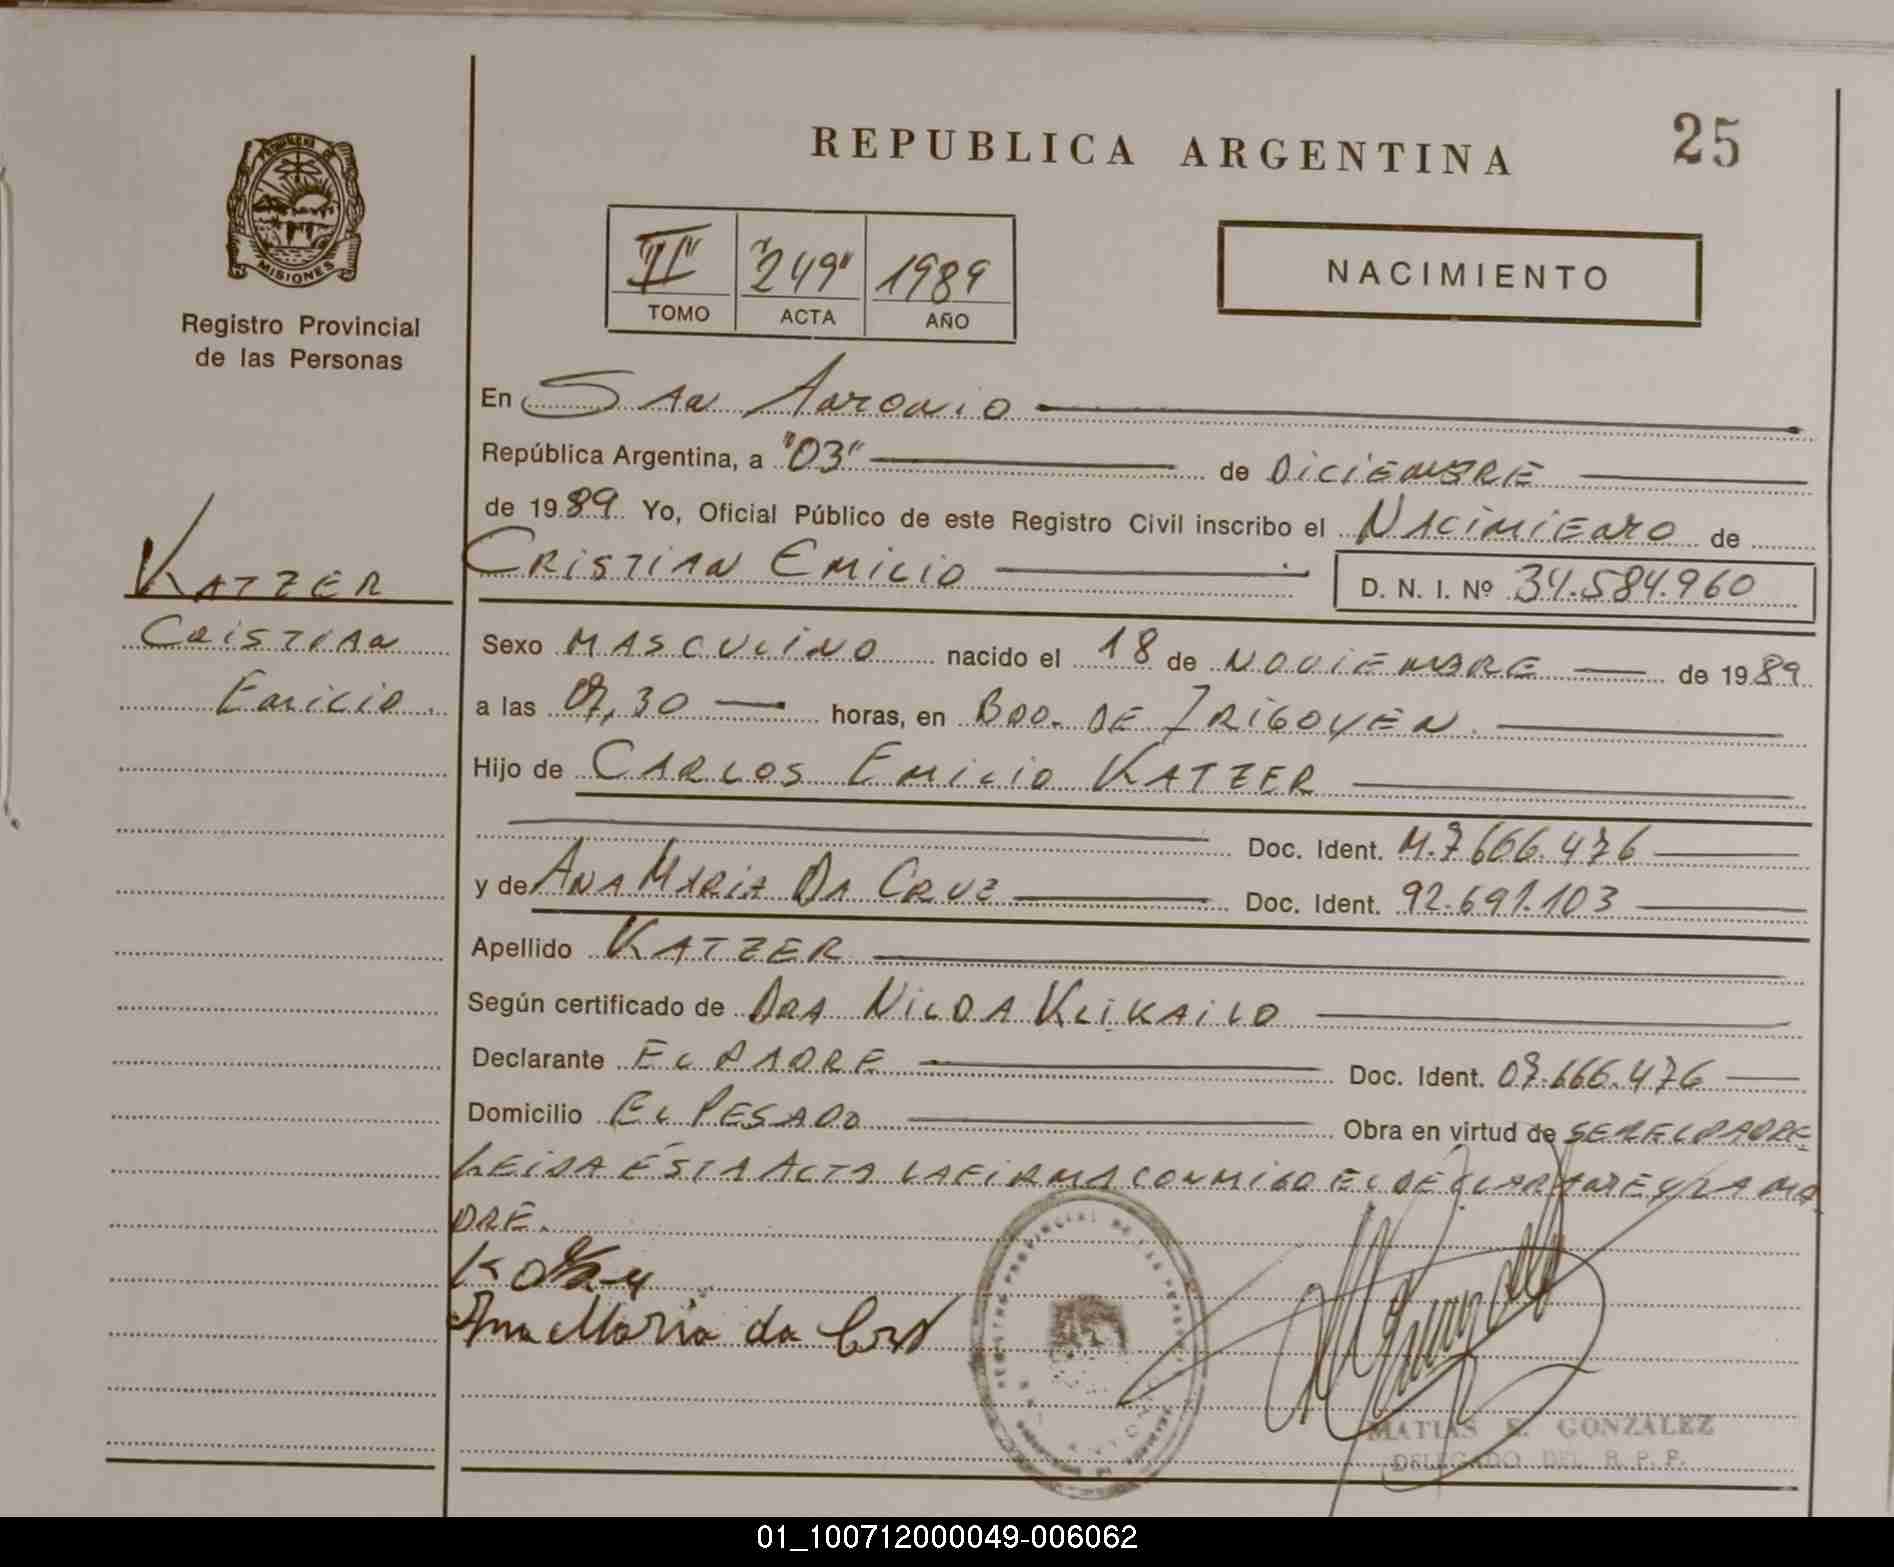 REPUBLICA ARGENTINA
25
PROVINCIA DE
MISIONES
Registro Provincial
de las Personas
II "249" 1989
TOMO ACTA AÑO
NACIMIENTO
En San Antonio
República Argentina, a "03" de DiCiEMBRE
de 1989 Yo, Oficial Público de este Registro Civil inscribo el NACiMiENTO de
CRiSTIAN EMiLiO D. N. I. Nº 34.584.960
KATZER
CRiSTIAN
EMiLiO.
Sexo MASCULiNO nacido el 18 de NOViEMBRE de 1989
a las 07,30 horas, en BDO. DE IRiGOYEN.
Hijo de CARLOS EMiLiO KATZER
Doc. Ident. M.7.666.476
y de ANA MARiA DA CRUZ Doc. Ident. 92.691.103
Apellido KATZER
Según certificado de DRA NiLDA KLiKAiLO
Declarante EL PADRE Doc. Ident. 07.666.476
Domicilio EL PESADO Obra en virtud de SER EL PADRE
LEiDA ÉSTA ACTA LA FiRMA CONMiGO EL DECLARANTE Y LA MA
DRE.
Ana Maria da Cruz
REGISTRO PROVINCIAL DE LAS PERSONAS
MATIAS E. GONZALEZ
DELEGADO DEL R. P. P.
01_100712000049-006062